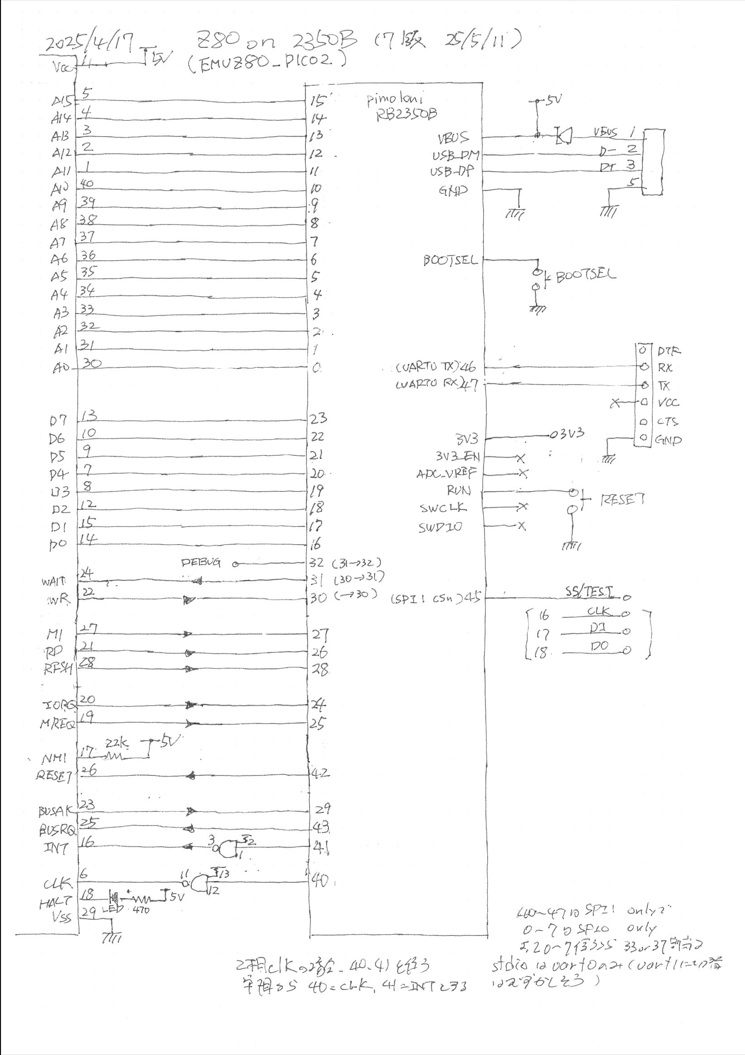 2025/4/17 Z80 on 2350B (7版 25/5/11)
(EMUZ80_PICO2)
Vcc 11 5V
A15 5 15
A14 4 14
A13 3 13
A12 2 12
A11 1 11
A10 40 10
A9 39 9
A8 38 8
A7 37 7
A6 36 6
A5 35 5
A4 34 4
A3 33 3
A2 32 2
A1 31 1
A0 30 0
D7 13 23
D6 10 22
D5 9 21
D4 7 20
D3 8 19
D2 12 18
D1 15 17
D0 14 16
DEBUG 32 (31→32)
WAIT 24 31 (30→31)
WR 22 30 (→30)
M1 27 27
RD 21 26
RFSH 28 28
IORQ 20 24
MREQ 19 25
NMI 17 22k 5V
RESET 26 42
BUSAK 23 29
BUSRQ 25 43
INT 16 3 2 1 41
CLK 6 11 13 12 40
HALT 18 LED 470 5V
VSS 29
pimoloni
RB2350B
5V
VBUS VBUS 1
USB_DM D- 2
USB_DP D+ 3
GND 5
BOOTSEL BOOTSEL
DTR
(UART0 TX) 46 RX
(UART0 RX) 47 TX
VCC
CTS
GND
3V3 3V3
3V3_EN
ADC_VREF
RUN RESET
SWCLK
SWDIO
(SPI1 CSn) 45 SS/TEST
16 CLK
17 DI
18 DO
40~47は SPI1 onlyで
0~7は SPI0 only
2相clkの場合、40,41を使う
40=CLK, 41=INTとする